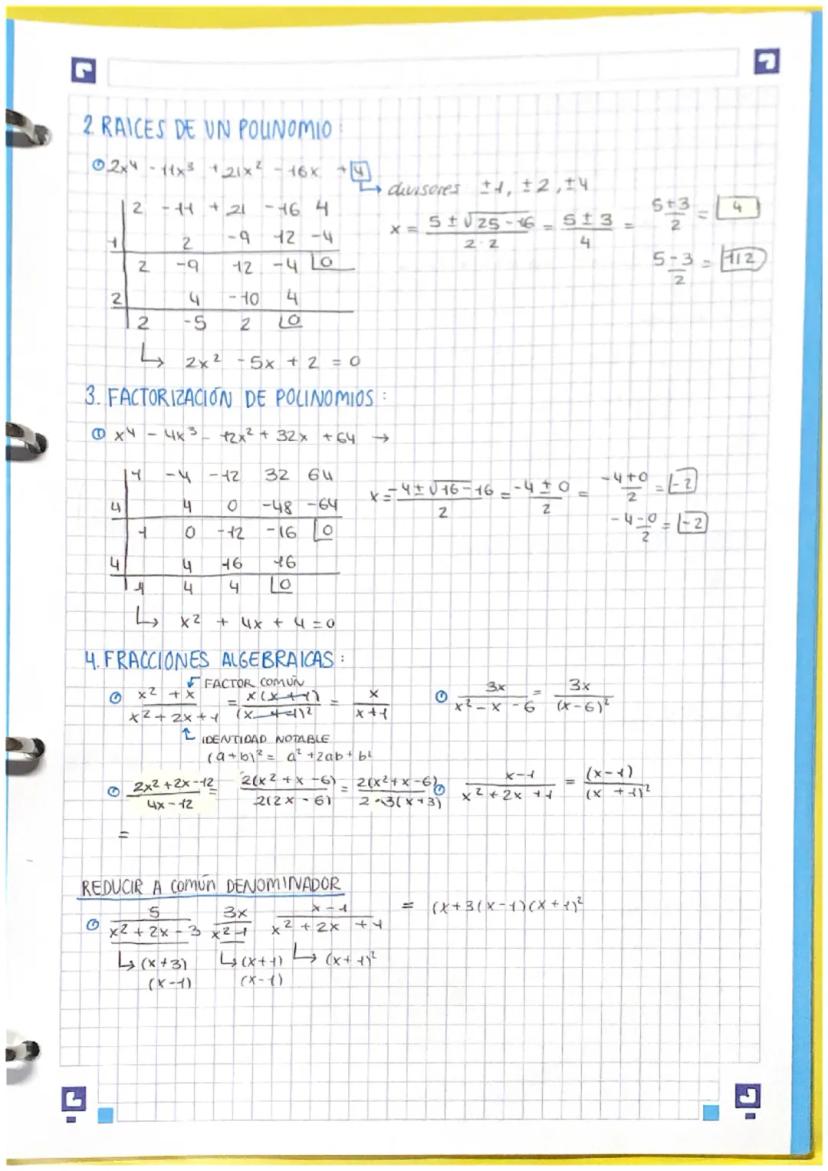 2 RAICES DE UN POLINOMIO:
2x⁴ - 11x³ + 21x² - 16x + 4
→ divisores ±1, ±2, ±4
2 -11 + 21 -16 4
1 2 -9 12 -4
2 -9 12 -4 0
2 4 -10 4
2 -5 2 0
↳ 2x² - 5x + 2 = 0
x = (5 ± √25 - 16)/(2·2) = (5 ± 3)/4 =
(5+3)/2 = 4
(5-3)/2 = 1/2
3. FACTORIZACIÓN DE POLINOMIOS:
① x⁴ - 4x³ - 12x² + 32x + 64 →
1 -4 -12 32 64
4 4 0 -48 -64
1 0 -12 -16 0
4 4 16 16
1 4 4 0
↳ x² + 4x + 4 = 0
x = (-4 ± √16 - 16)/2 = (-4 ± 0)/2 =
(-4+0)/2 = -2
(-4-0)/2 = -2
4. FRACCIONES ALGEBRAICAS:
FACTOR COMÚN
(x² + x)/(x² + 2x + 1) = x(x+1)/(x+1)² = x/(x+1)
3x/(x² - x - 6) = 3x/(x-6)²
IDENTIDAD NOTABLE
(a+b)² = a² + 2ab + b²
(2x² + 2x - 12)/(4x - 12) = 2(x² + x - 6)/2(2x - 6) = 2(x² + x - 6)/2·3(x+3)
(x-1)/(x² + 2x + 1) = (x-1)/(x+1)²
=
REDUCIR A común DENOMINADOR
5/(x² + 2x - 3) 3x/(x² - 1) (x-1)/(x² + 2x + 1) = (x+3(x-1)(x+1)²
↳ (x+3) ↳ (x+1) ↳ (x+1)²
(x-1) (x-1)